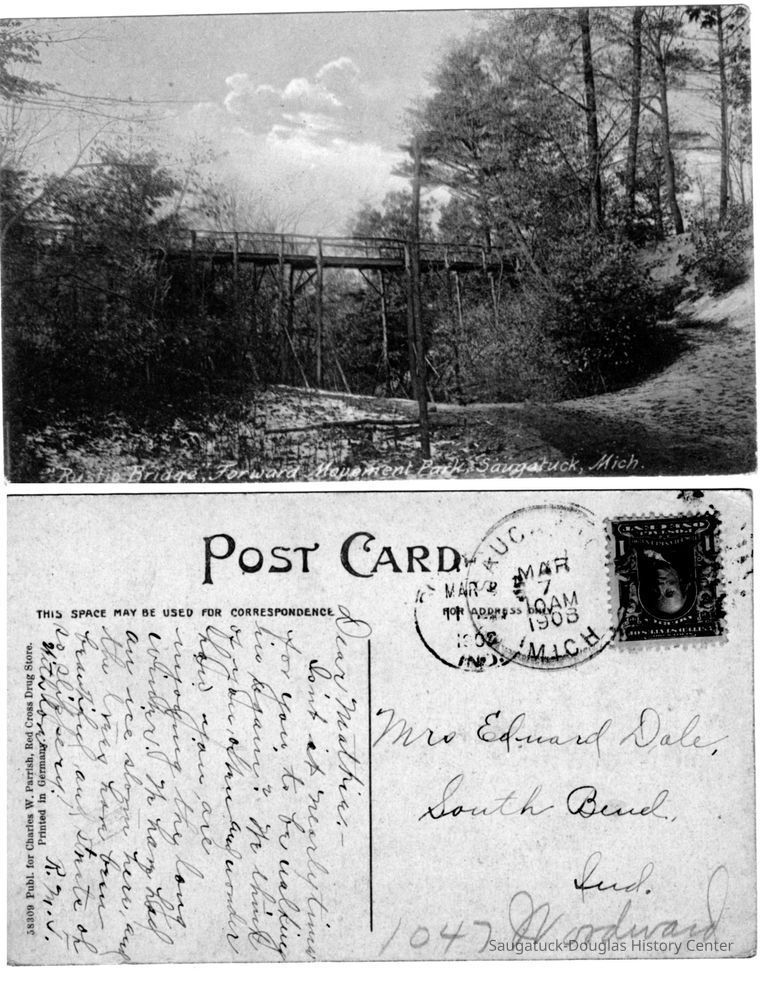 "Rustic Bridge", Forward Movement Park, Saugatuck, Mich.
POST CARD
THIS SPACE MAY BE USED FOR CORRESPONDENCE
FOR ADDRESS ONLY
MAR
7
10 AM
1908
MICH
MAR
IND.
Mrs Edward Dale,
South Bend,
Ind.
1047 Woodward
Dear
Isn't it nearly time
for you to be walking
in again? We think
of you often and wonder
how you are
enjoying the long
winter. We have had
an ice storm here, and
the trees have been
beautiful and
so slippery!
R. M. S.
58309 Publ. for Charles W. Parrish, Red Cross Drug Store.
Printed in Germany.
Saugatuck-Douglas History Center